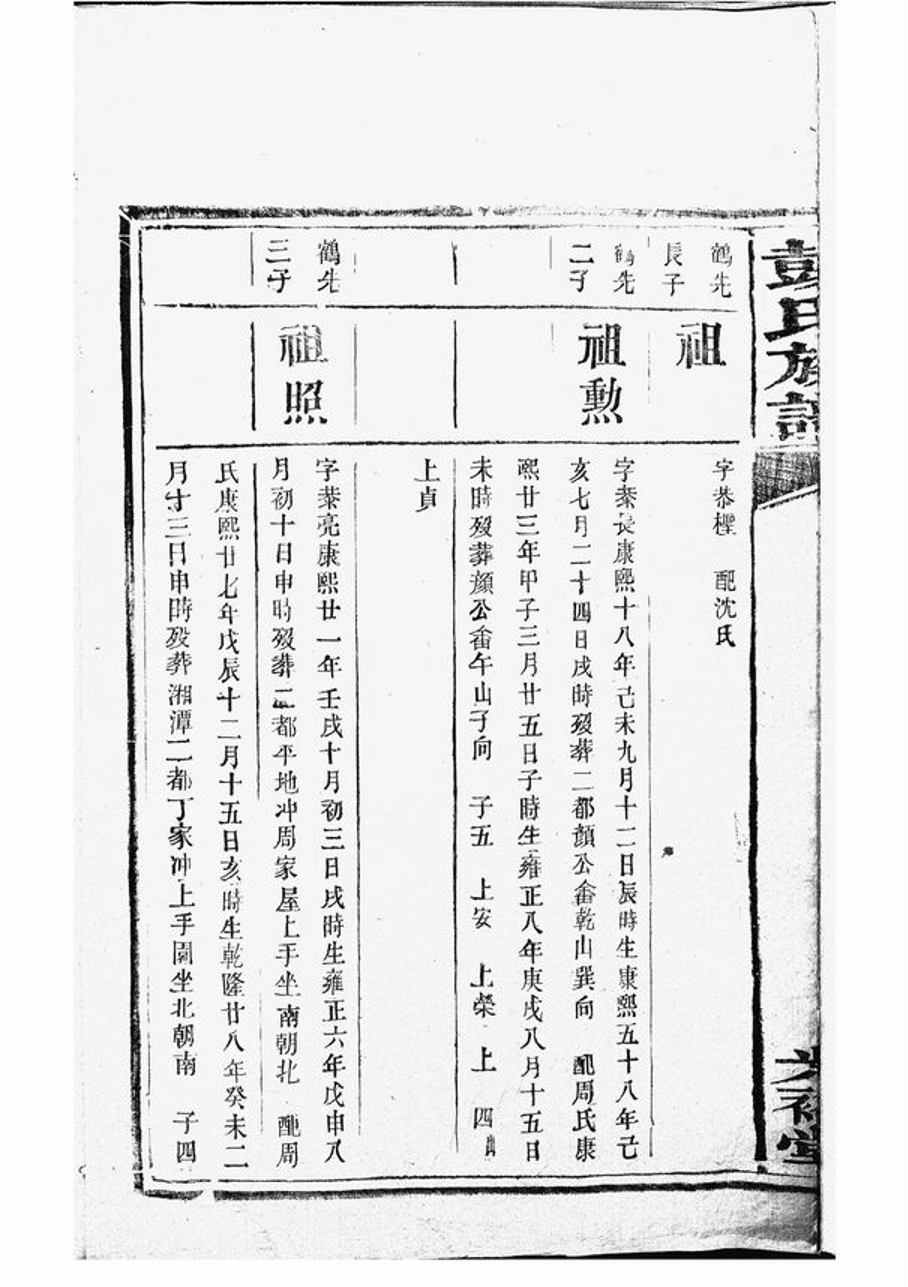 彭氏族譜
光裕堂
鶴先
長子
祖
字恭樫 配沈氏
鶴先
二子
祖勲
字棻長康熙十八年己未九月十二日辰時生康熙五十八年己
亥七月二十四日戌時殁葬二都顏公畬乾山巽向 配周氏康
熙廿三年甲子三月廿五日子時生雍正八年庚戌八月十五日
未時殁葬顏公畬午山子向 子五 上安 上榮 上 四
上貞
鶴先
三子
祖照
字棻亮康熙廿一年壬戌十月初三日戌時生雍正六年戊申八
月初十日申時殁葬二都平地冲周家屋上手坐南朝北 配周
氏康熙廿七年戊辰十二月十五日亥時生乾隆廿八年癸未二
月廿三日申時殁葬湘潭二都丁家冲上手園坐北朝南 子四